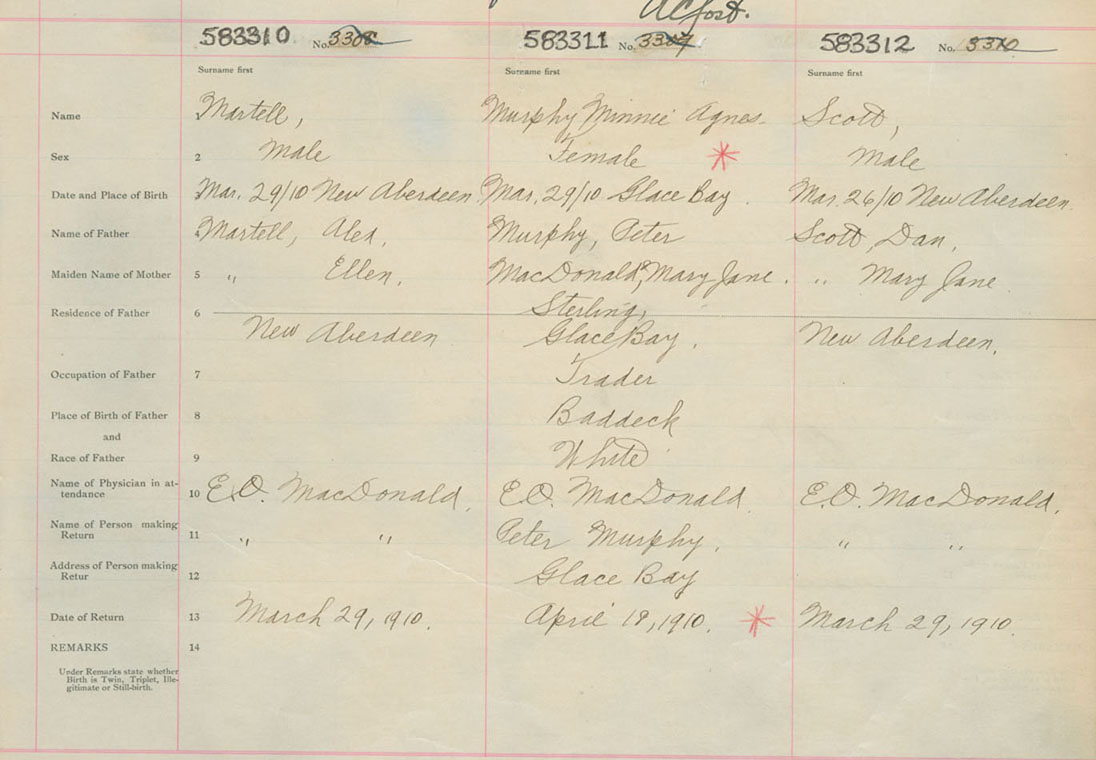 A C Jost.
583310 No. 3308 583311 No. 3309 583312 No. 3310
Surname first Surname first Surname first
Name 1 Martell, Murphy Minnie Agnes. Scott,
Sex 2 Male Female * Male
Date and Place of Birth 3 Mar. 29/10 New Aberdeen. Mar. 29/10 Glace Bay. Mar. 26/10 New Aberdeen.
Name of Father 4 Martell, Alex, Murphy, Peter Scott, Dan,
Maiden Name of Mother 5 " Ellen, MacDonald, Mary Jane. " Mary Jane
Residence of Father 6 Sterling,
New Aberdeen Glace Bay, New Aberdeen,
Occupation of Father 7 Trader
Place of Birth of Father 8 Baddeck
and
Race of Father 9 White
Name of Physician in at-
tendance 10 E.O. MacDonald, E.O. MacDonald. E.O. MacDonald,
Name of Person making
Return 11 " " Peter Murphy, " "
Address of Person making
Retur 12 Glace Bay
Date of Return 13 March 29, 1910. April 18, 1910. * March 29, 1910.
REMARKS 14
Under Remarks state whether
Birth is Twin, Triplet, Ille-
gitimate or Still-birth.